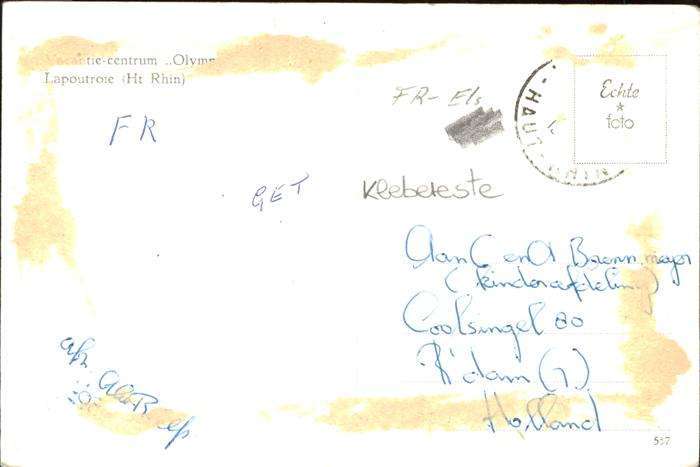 tie-centrum „Olymp
Lapoutroie (Ht Rhin)
FR-Els
Echte
foto
HAUT-RHIN
FR
GET
Klebereste
Aan C en A Brenn meyer
(kinderafdeling)
Coolsingel 80
R'dam (1)
Holland
afz.
557